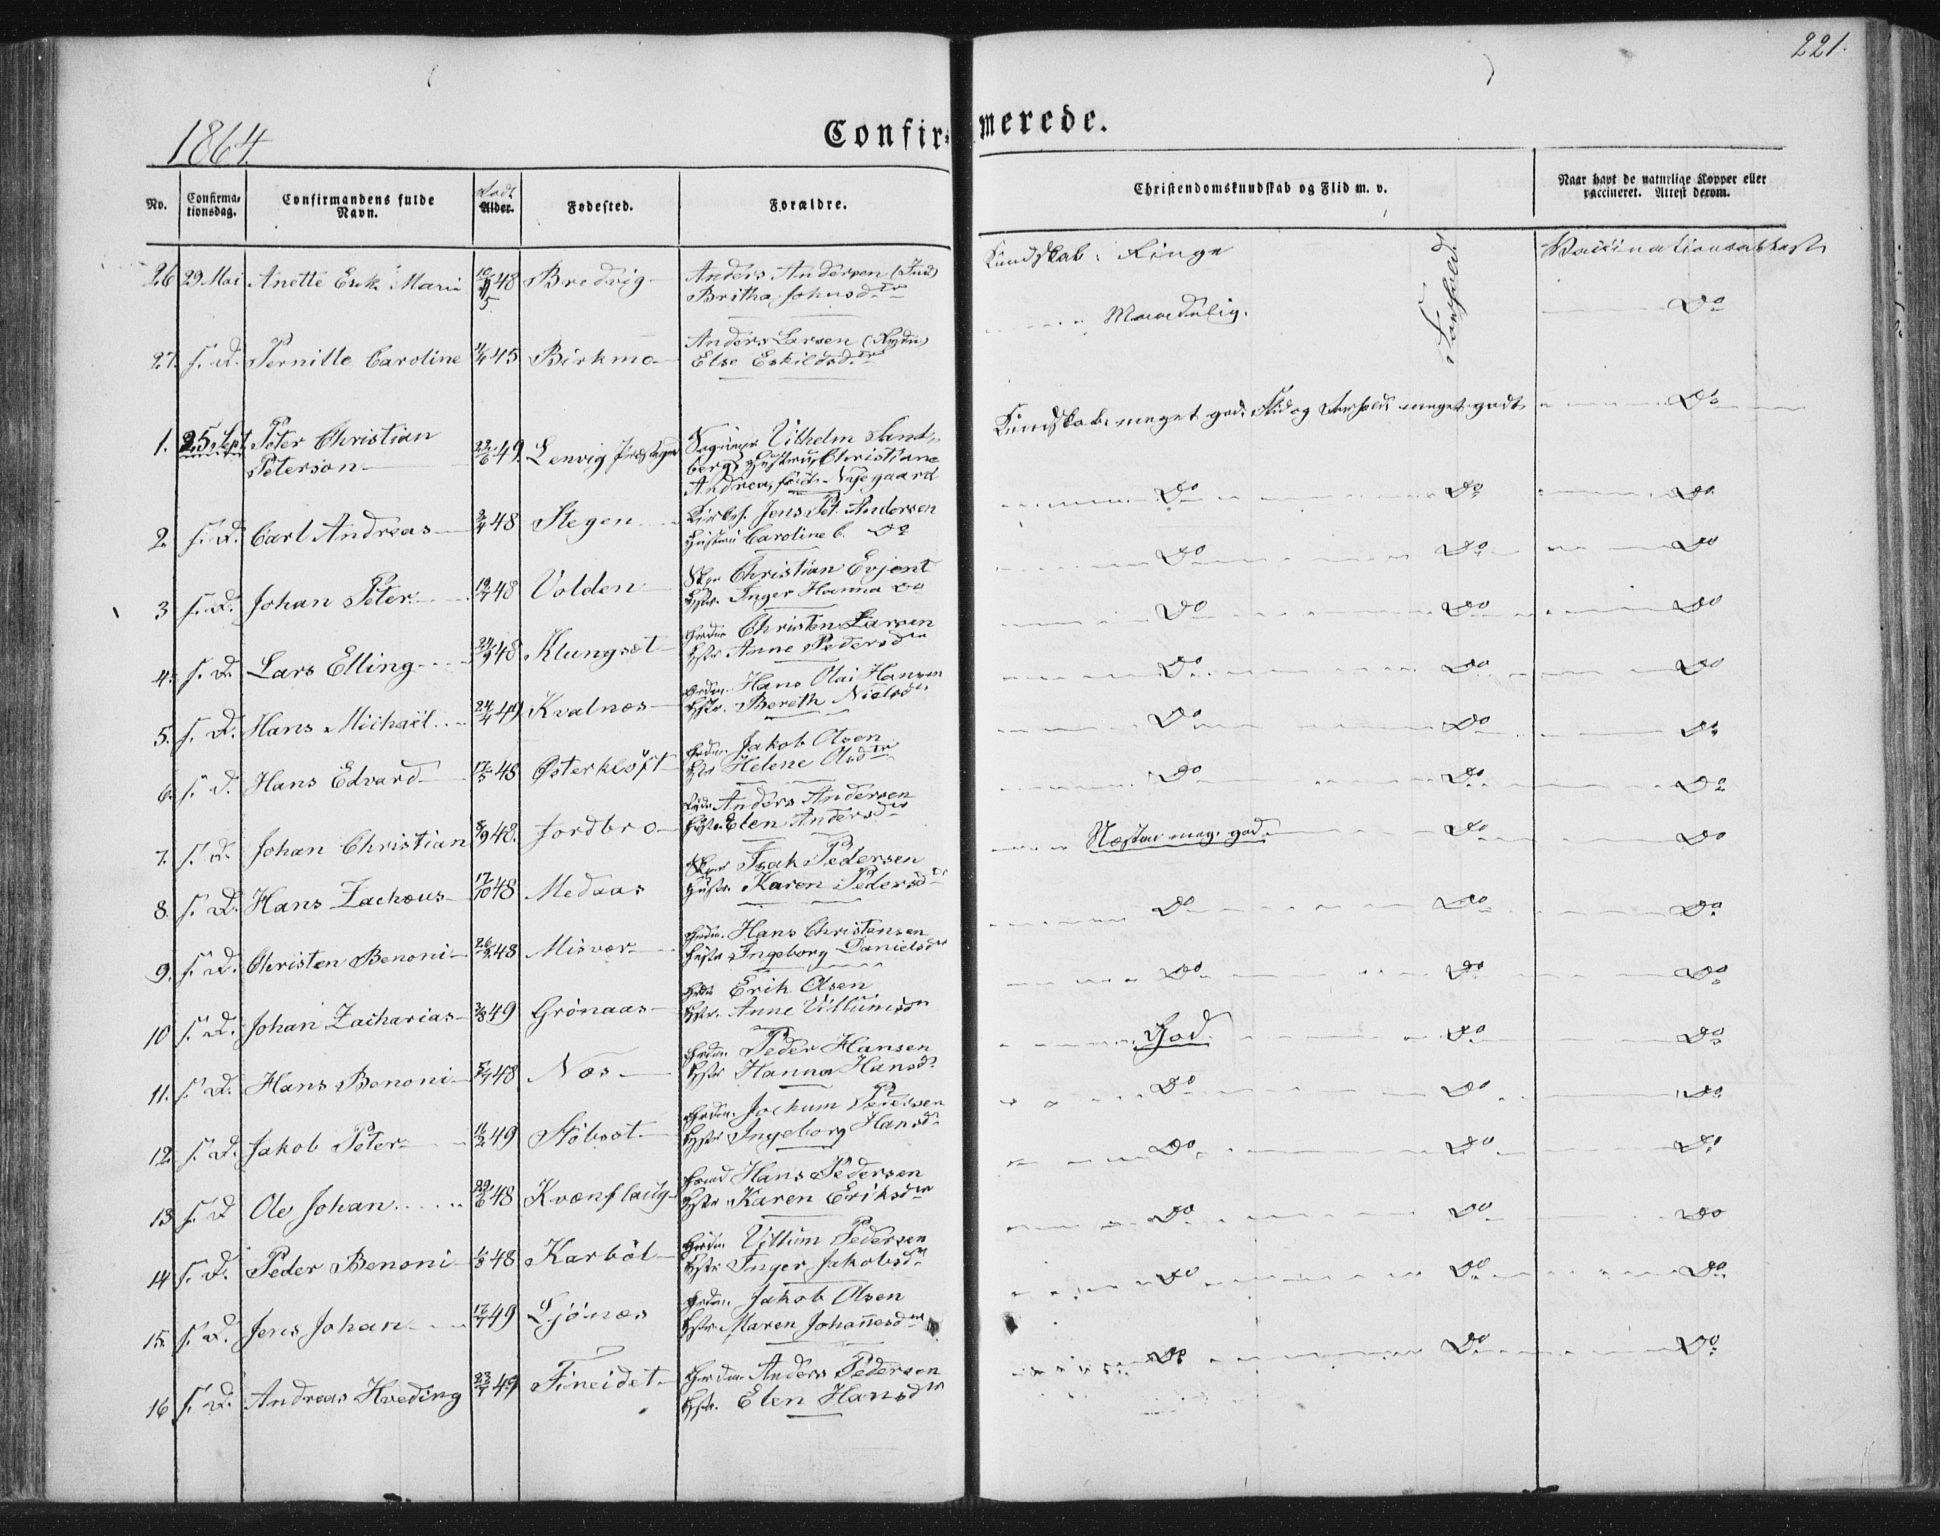 221.
1864
Confirmerede.
No. Confirmationsdag. Confirmandens fulde Navn. Født Alder. Fødested. Forældre. Christendomskundskab og Flid m. v. Naar havt de naturlige Kopper eller vaccineret. Attest derom.
26 29 Mai Anette Erik. Maria 48 Bredvig Anders Andersen
Britha Johnsd.
Kundskab: Ringe Forhold Vaccinationsattest
27. s. D. Pernille Caroline 45 Birkmo Anders Larsen
Else Eskildsd.
Maadelig. Do
1. 25 Sept Peter Christian 22/6 49. Lenvig Vilhelm Sand-
Petersen berg, Hustru Christiane
Andrea, född Nygaard
Kundskab: meget god. Flid og Forhold meget godt Do
2. s. D. Carl Andreas 48 Stegen Kirkes. Jens Pet. Andersen
Hustru Caroline C. Do
Do Do Do
3 s. D. Johan Peter 48 Volden Christian Evjent
Hstr. Inger Hanna Do
Do Do Do
4. s. D. Lars Elling 48 Klungset Christen Larsen
Hstr Anne Pedersd
Do Do Do
5. s. D. Hans Michael 49 Kvalnæs Hans Olai Hansen
Hstr. Bereth Nielsd
Do Do Do
6. s. D. Hans Edvard 48 Østerkløft Jakob Olsen
Hstr Helene Olsd
Do Do Do
7. s. D. Johan Christian 8/9 48. Jordbro Anders Andersen
Hstr. Elen Andersd
Do Do Do
8. s. D. Hans Zachæus 17/10 48 Medaas Isak Pedersen
Hustr. Karen Pedersd
Næsten meg. god. Do Do
9. s. D. Christen Benoni 48 Misvær Hans Christensen
Hustr Ingeborg Danielsd
Do Do Do
10 s. D. Johan Zacharias 49 Grønaas Erik Olsen
Hstr. Anne Villumsd
Do Do Do
11. s. D. Hans Benoni 48 Næs Peder Hansen
Hstr Hanna Hansd
God. Do Do
12. s. D. Jakob Peter 49 Støbset Jochum Petersen
Hstr Ingeborg Hansd
Do Do Do
13 s. D Ole Johan 29/6 48 Kvænflaug Hans Pedersen
Hstr Karen Eriksd
Do Do Do
14 s. D. Peder Benoni 48 Karbøl Villum Pedersen
Hstr Inger Jakobsd
Do Do Do
15. s. D. Jens Johan 49 Ljønæs Jakob Olsen
Hstr Maren Johannesd
Do Do Do
16 s. D. Andreas Hveding 49 Fineidet Anders Pedersen
Hstr. Elen Hansd
Do Do Do